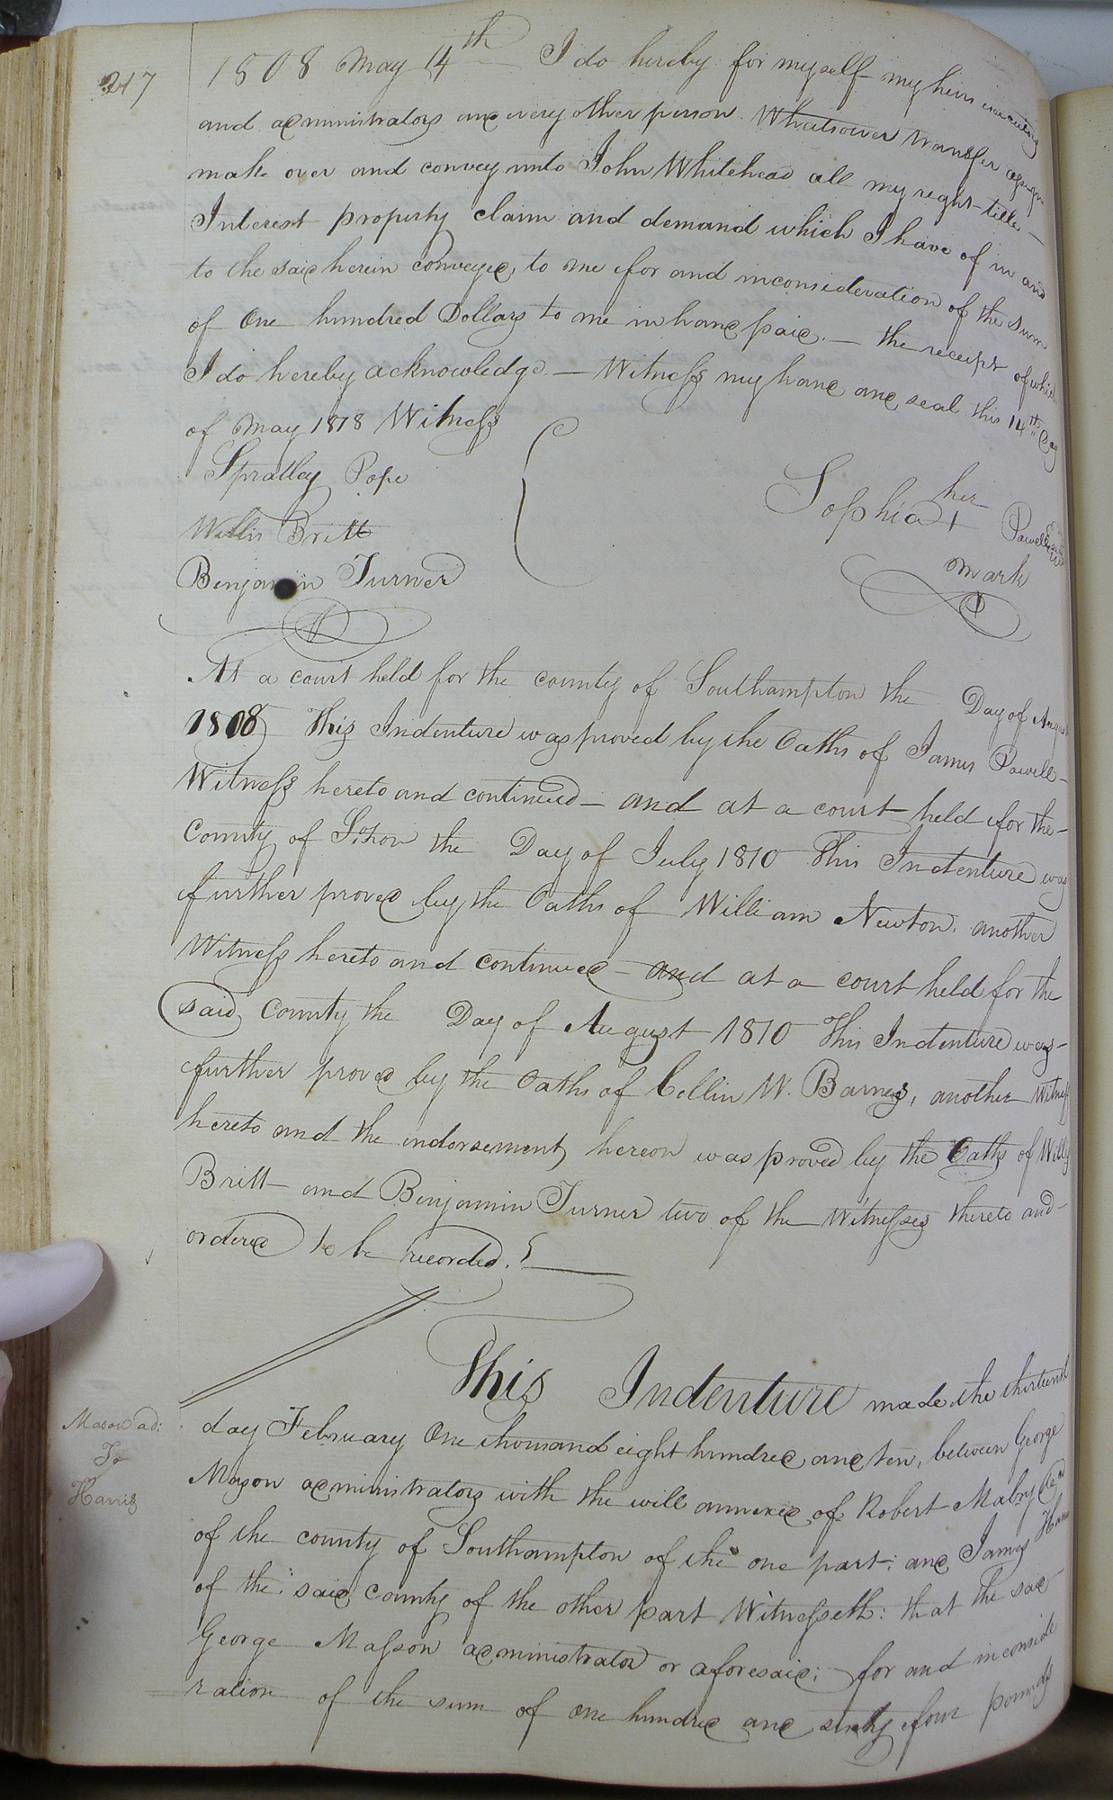 247
1808 May 14th I do hereby for myself my heirs executors
and administrators and every other person Whatsoever transfer assign
make over and convey unto John Whitehead all my right title
Interest property claim and demand which I have of in and
to the said herein conveyed, to me for and inconsideration of the sum
of One hundred Dollars to me in hand paid. — the receipt of which
I do hereby acknowledge — Witness my hand and seal this 14th day
of May 1818 Witness
Spratley Pope
Willis Britt
Benjamin Turner
her
Sophia + Powell
mark
At a court held for the county of Southampton the Day of August
1808 This Indenture was proved by the Oaths of James Powell
Witness hereto and continued — and at a court held for the
County of Soton the Day of July 1810 This Indenture was
further proved by the Oaths of William Newton, another
Witness hereto and continued — and at a court held for the
said County the Day of August 1810 This Indenture was
further proved by the Oaths of Collin W. Barnes, another Witness
hereto and the indorsement, hereon was proved by the Oaths of Willis
Britt and Benjamin Turner two of the Witnesses thereto and
ordered to be recorded.
This Indenture made the thirteenth
Mason ad:
To
Harris
day February One thousand eight hundred and ten, between George
Mason administrators with the will annexed of Robert Mabry decd
of the county of Southampton of the one part: and James Harris
of the said county of the other part Witnesseth: that the said
George Masson administrator or aforesaid; for and in conside
ration of the sum of one hundred and sixty four pounds